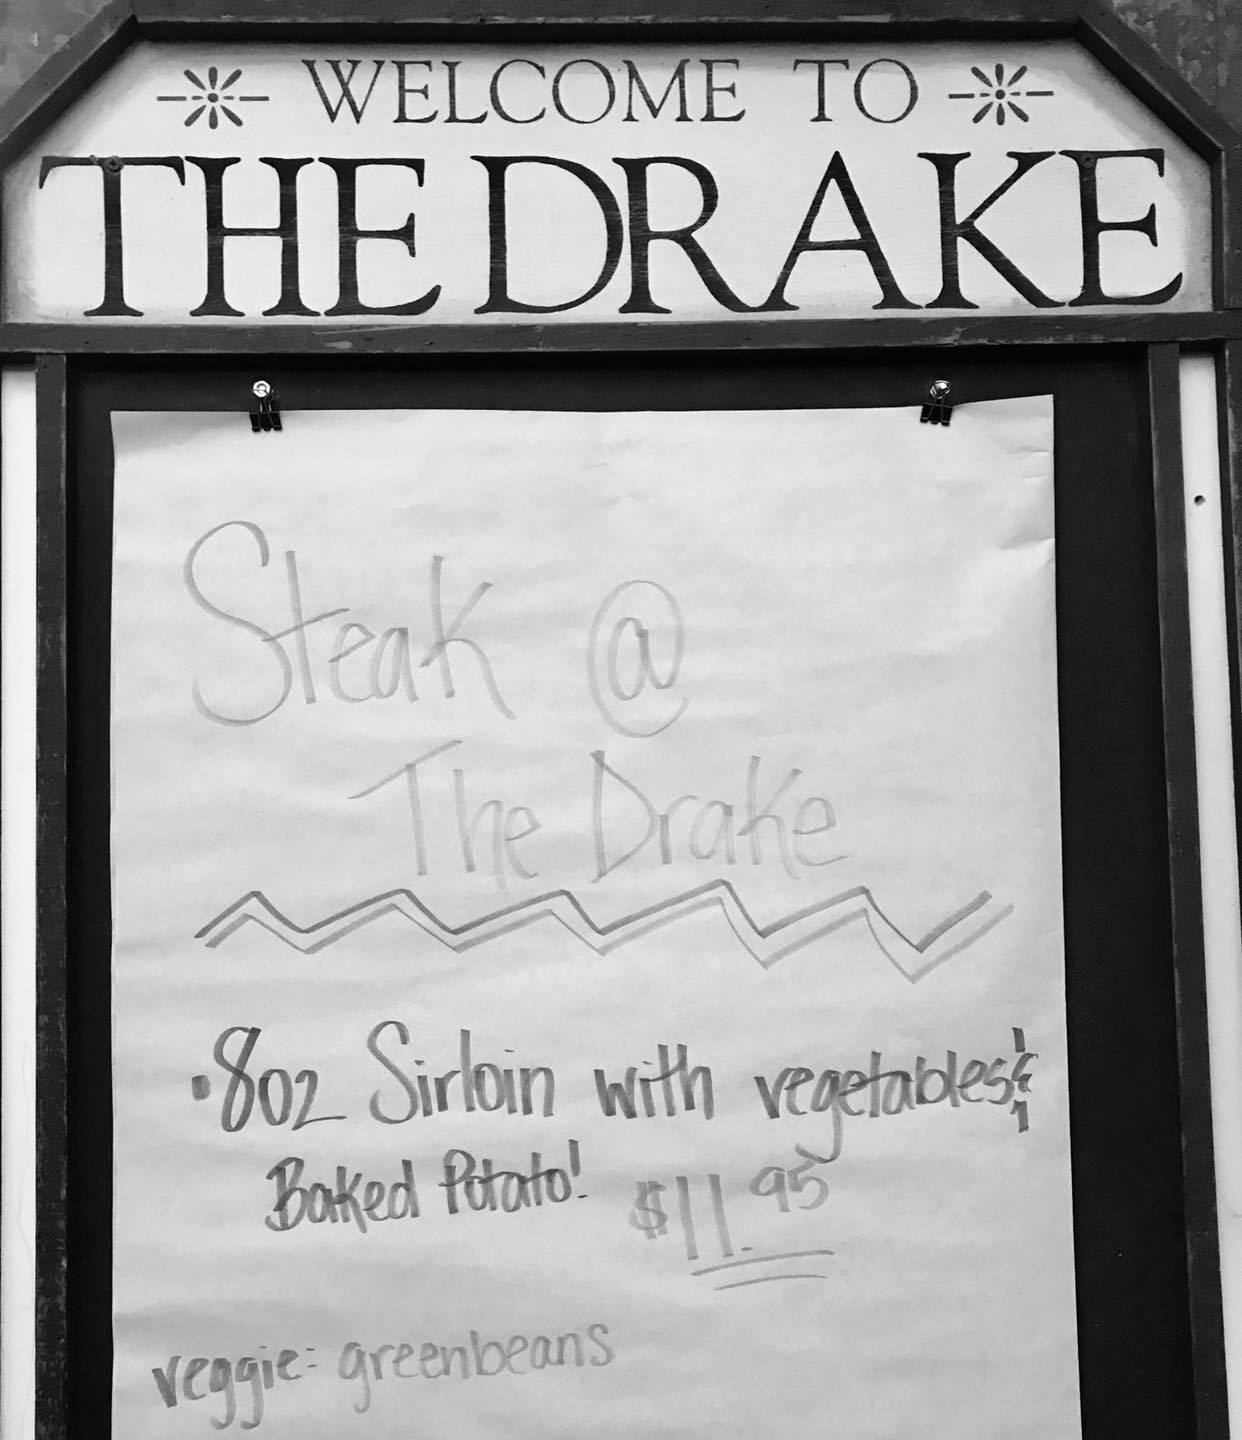 WELCOME TO
THE DRAKE
Steak @
The Drake
• 8oz Sirloin with vegetables &
Baked Potato! $11.95
veggie: greenbeans